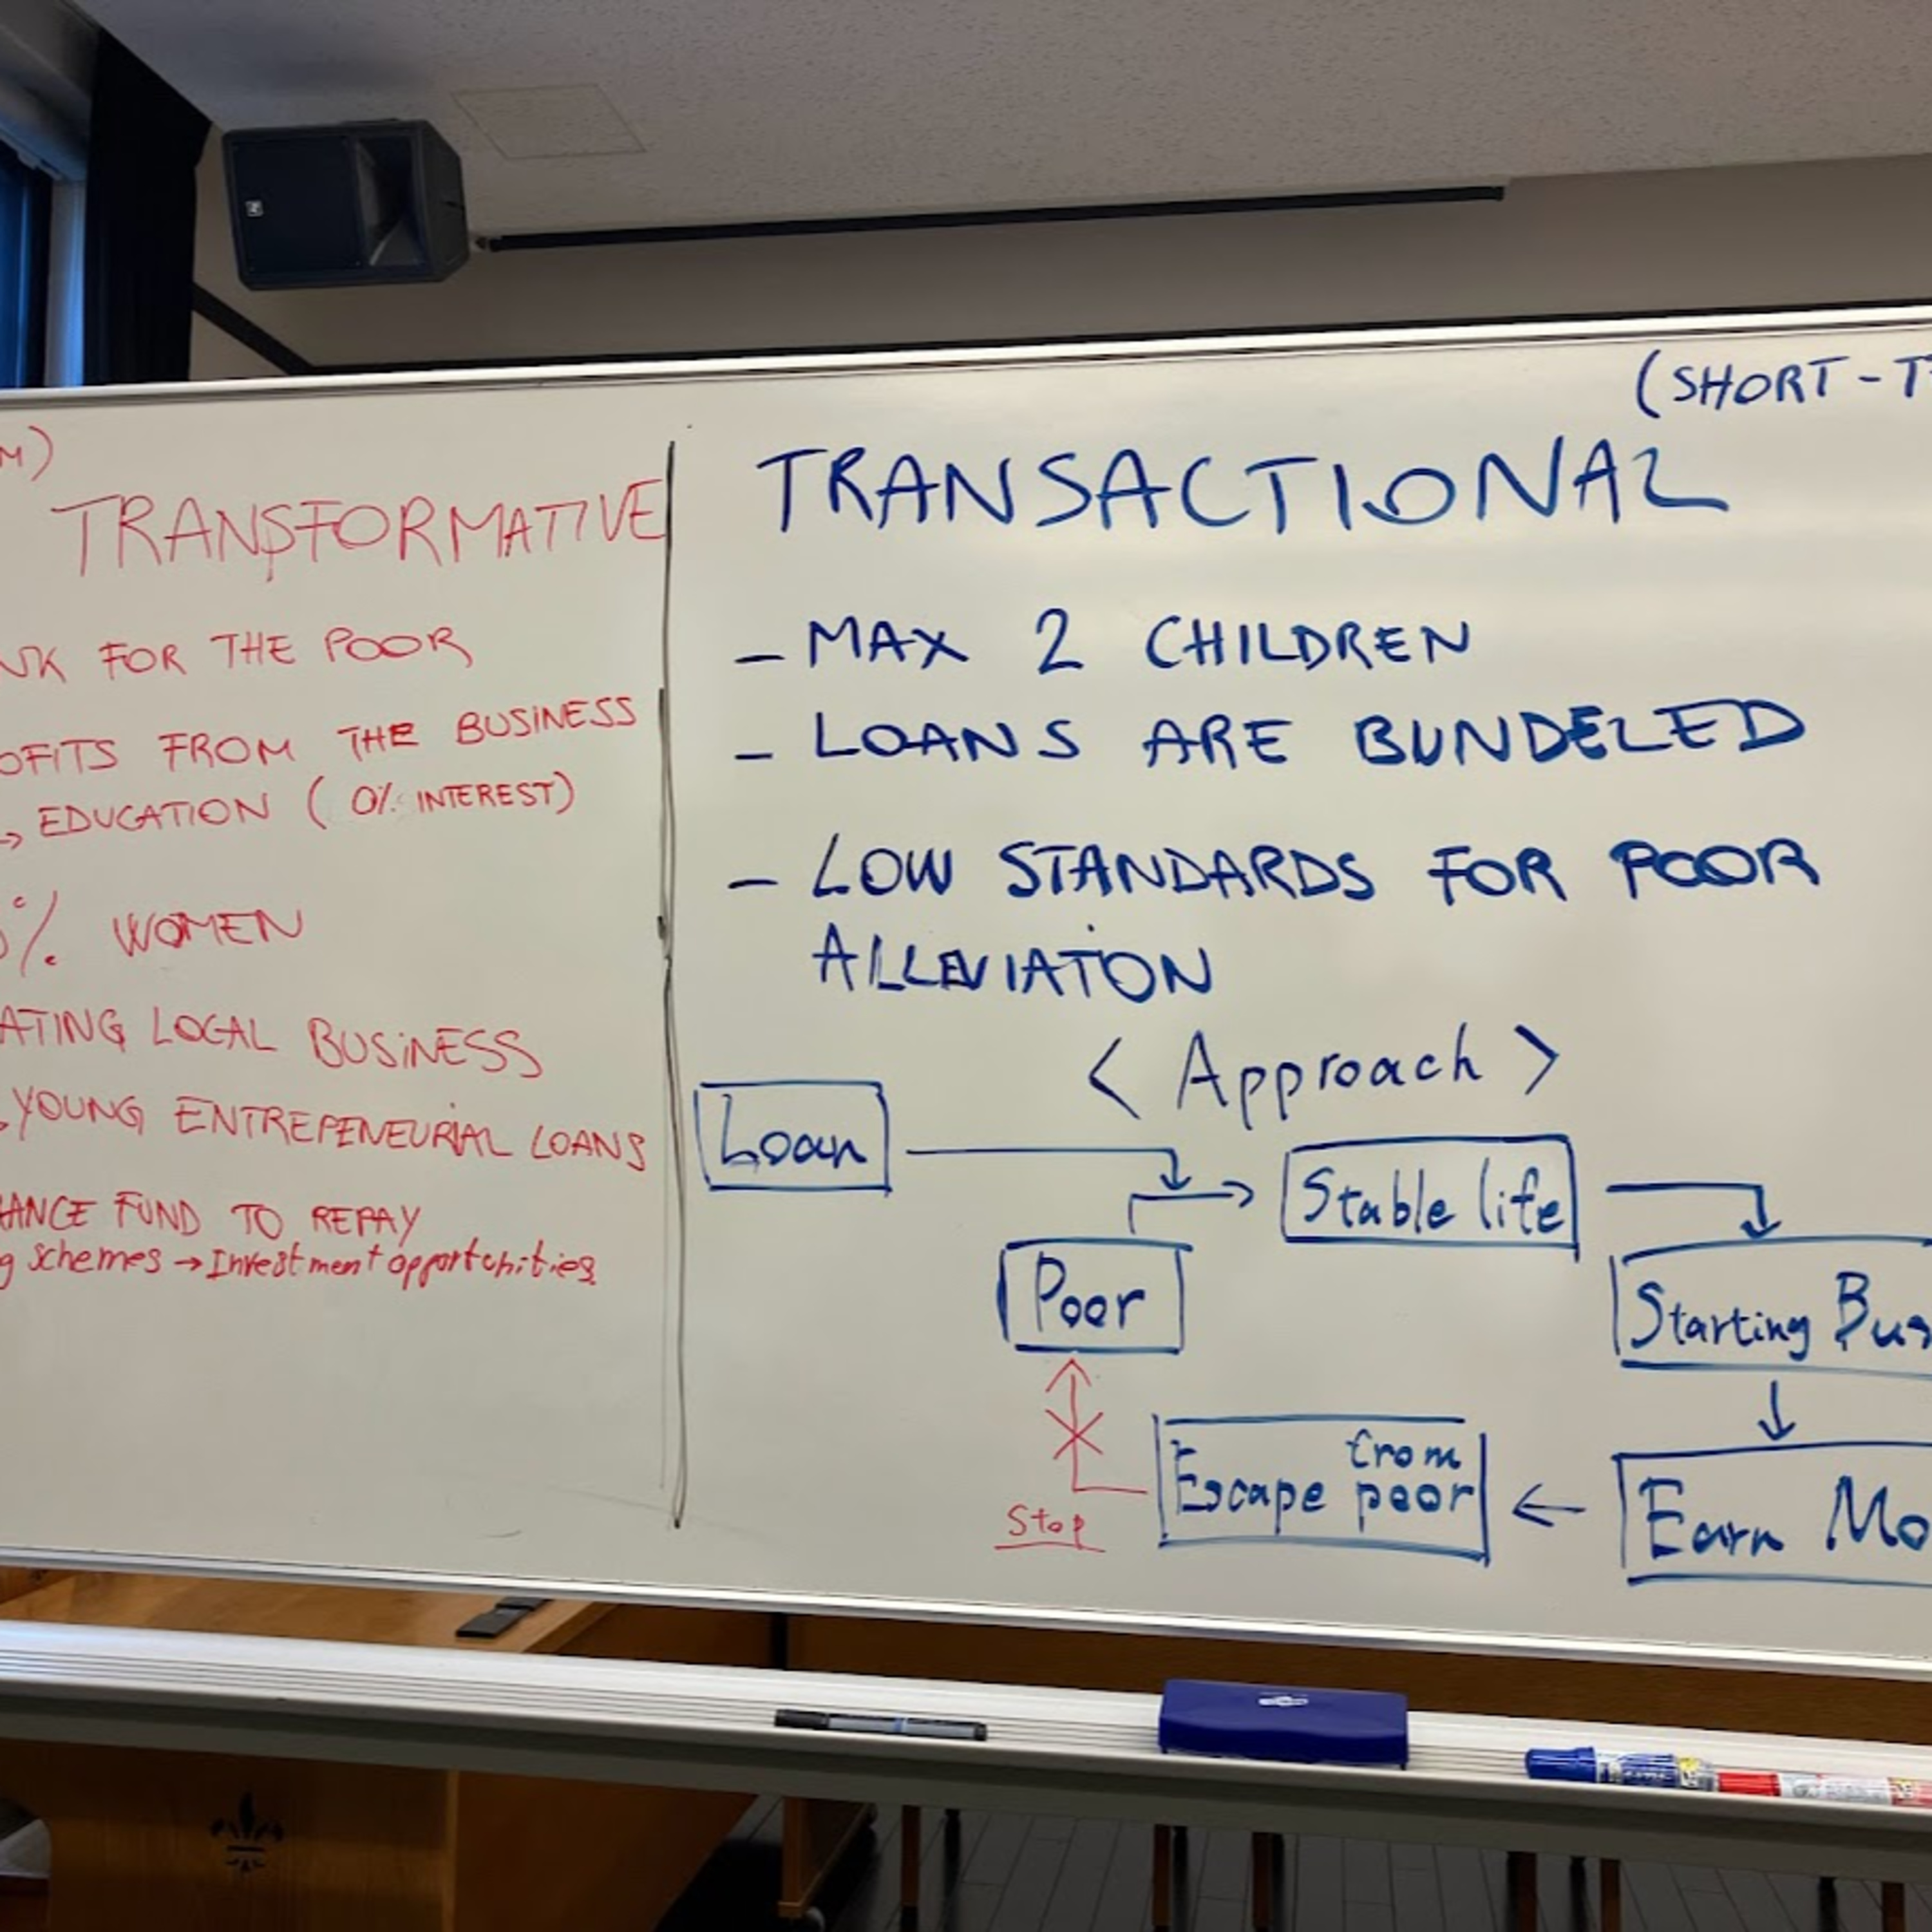 TRANSFORMATIVE
FOR THE POOR
FROM THE BUSINESS
→ EDUCATION ( 0% INTEREST)
% WOMEN
LOCAL BUSINESS
YOUNG ENTREPENEURIAL LOANS
FUND TO REPAY
schemes → Investment opportunities
(SHORT-T
TRANSACTIONAL
- MAX 2 CHILDREN
- LOANS ARE BUNDELED
- LOW STANDARDS FOR POOR
ALLEVIATON
< Approach >
Loan
Stable life
Poor
Starting Bus
Escape from
poor
Earn Mo
Stop